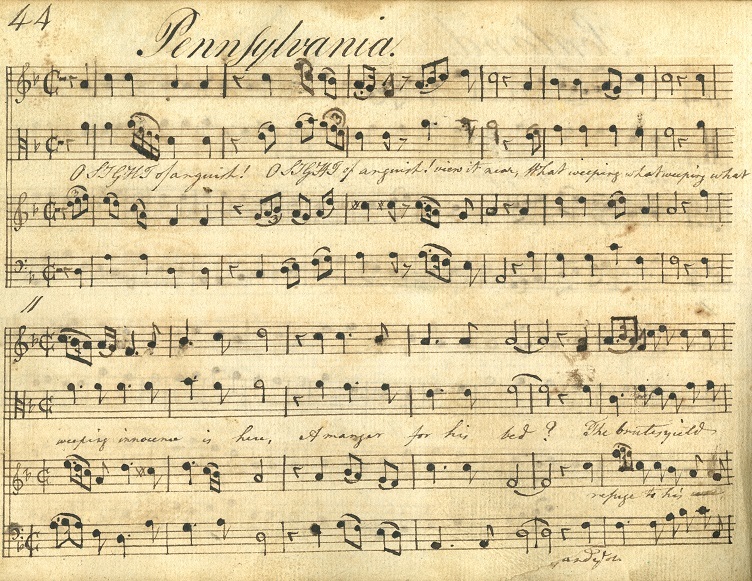 44
Pennsylvania.
O SIGHT of anguish! O SIGHT of anguish! view it near, What weeping what weeping what
11
weeping innocence is here, A manger for his bed? The brutes yield
refuge to his